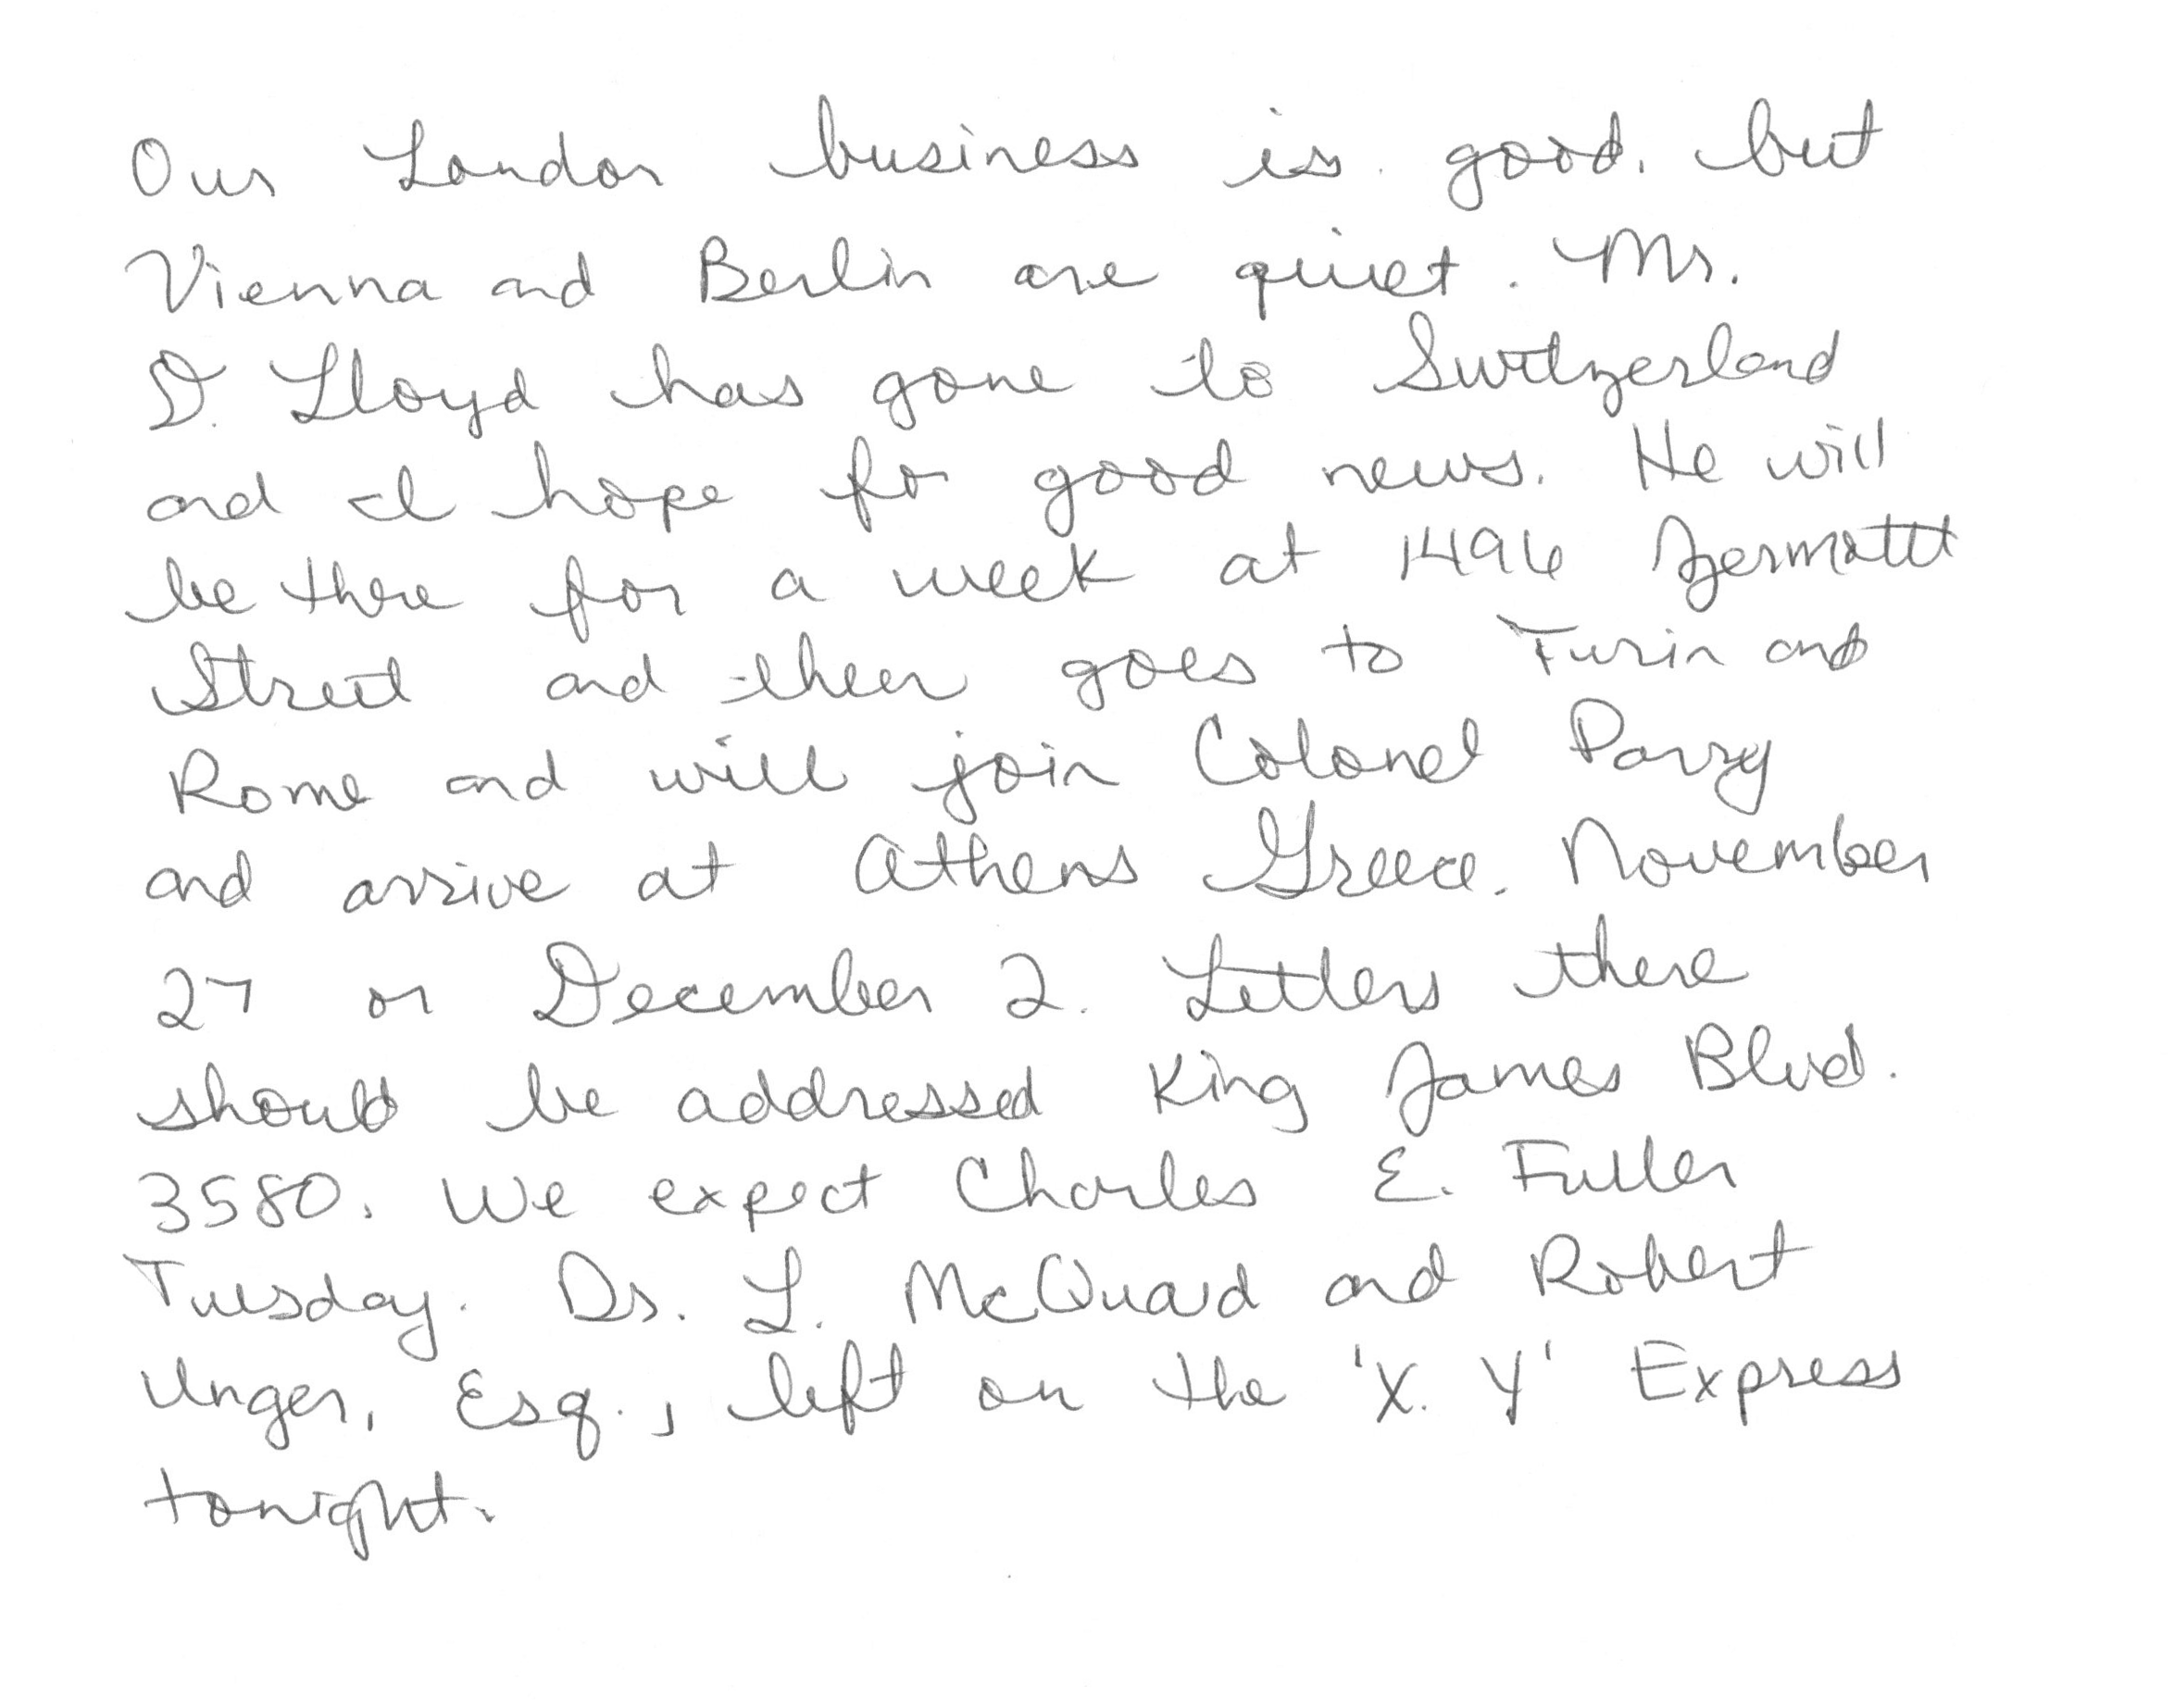 Our London business is good, but
Vienna and Berlin are quiet. Mr.
D. Lloyd has gone to Switzerland
and I hope for good news. He will
be there for a week at 1496 Zermattt
Street and then goes to Turin and
Rome and will join Colonel Parry
and arrive at Athens Greece. November
27 or December 2. Letters there
should be addressed King James Blvd.
3580. We expect Charles E. Fuller
Tuesday. Dr. L. McQuaid and Robert
Unger, Esq., left on the 'X. Y' Express
tonight.